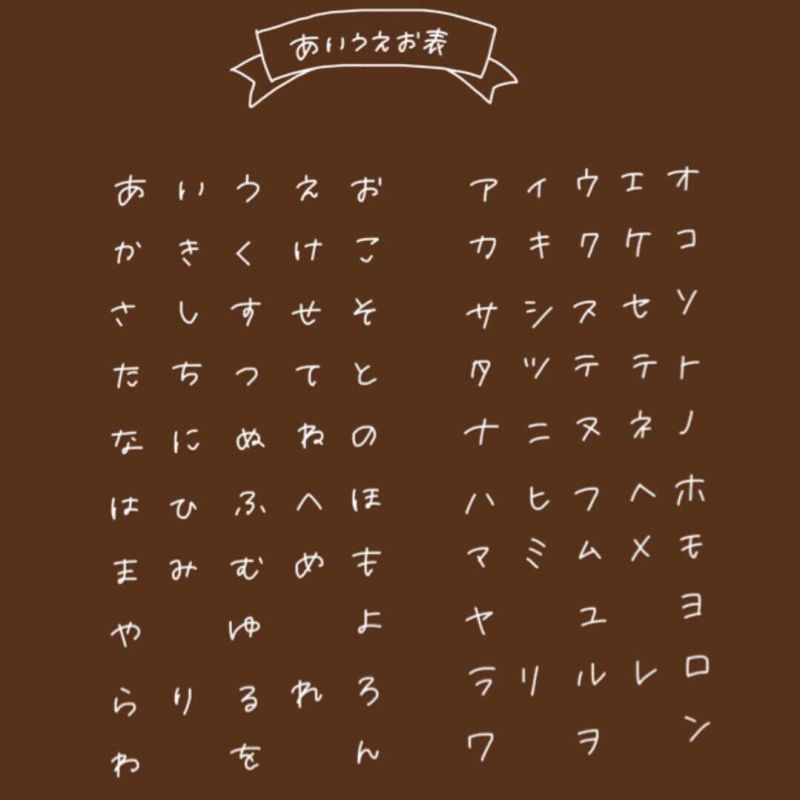 あいうえお表
あ い う え お
か き く け こ
さ し す せ そ
た ち つ て と
な に ぬ ね の
は ひ ふ へ ほ
ま み む め も
や ゆ よ
ら り る れ ろ
わ を ん
ア イ ウ エ オ
カ キ ク ケ コ
サ シ ス セ ソ
タ ツ テ テ ト
ナ ニ ヌ ネ ノ
ハ ヒ フ ヘ ホ
マ ミ ム メ モ
ヤ ユ ヨ
ラ リ ル レ ロ
ワ ヲ ン